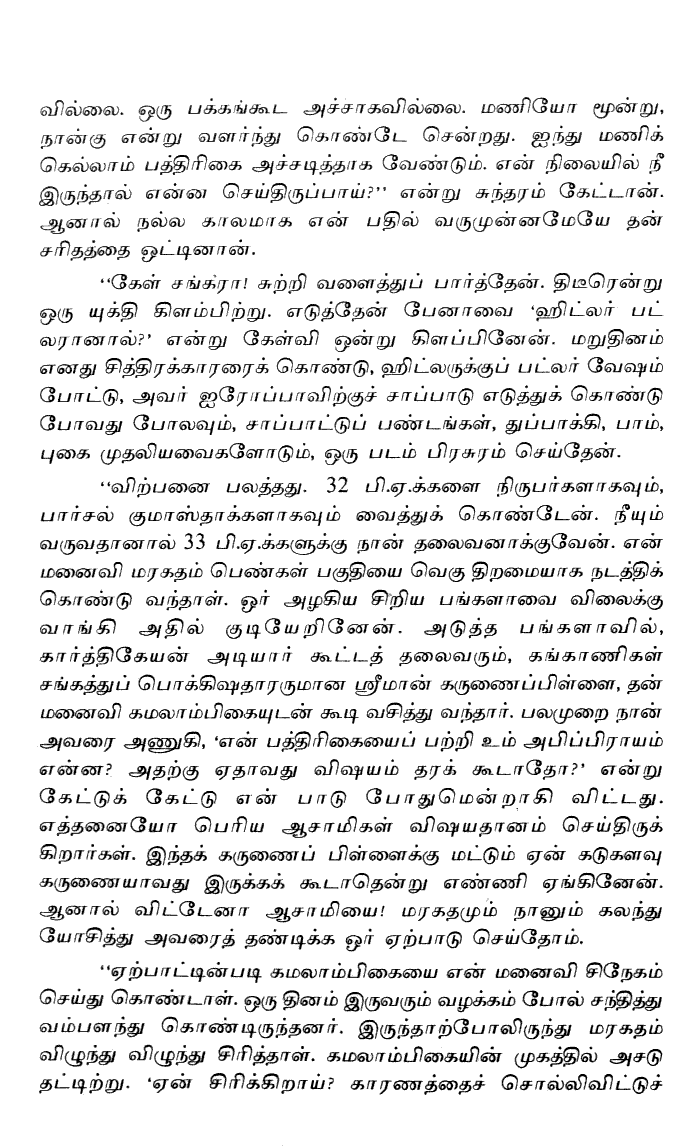 வில்லை. ஒரு பக்கங்கூட அச்சாகவில்லை. மணியோ மூன்று,
நான்கு என்று வளர்ந்து கொண்டே சென்றது. ஐந்து மணிக்
கெல்லாம் பத்திரிகை அச்சடித்தாக வேண்டும். என் நிலையில் நீ
இருந்தால் என்ன செய்திருப்பாய்?'' என்று சுந்தரம் கேட்டான்.
ஆனால் நல்ல காலமாக என் பதில் வருமுன்னமேயே தன்
சரிதத்தை ஒட்டினான்.
‘‘கேள் சங்கரா! சுற்றி வளைத்துப் பார்த்தேன். திடீரென்று
ஒரு யுக்தி கிளம்பிற்று. எடுத்தேன் பேனாவை ‘ஹிட்லர் பட்
லரானால்?’ என்று கேள்வி ஒன்று கிளப்பினேன். மறுதினம்
எனது சித்திரக்காரரைக் கொண்டு, ஹிட்லருக்குப் பட்லர் வேஷம்
போட்டு, அவர் ஐரோப்பாவிற்குச் சாப்பாடு எடுத்துக் கொண்டு
போவது போலவும், சாப்பாட்டுப் பண்டங்கள், துப்பாக்கி, பாம்,
புகை முதலியவைகளோடும், ஒரு படம் பிரசுரம் செய்தேன்.
‘‘விற்பனை பலத்தது. 32 பி.ஏ.க்களை நிருபர்களாகவும்,
பார்சல் குமாஸ்தாக்களாகவும் வைத்துக் கொண்டேன். நீயும்
வருவதானால் 33 பி.ஏ.க்களுக்கு நான் தலைவனாக்குவேன். என்
மனைவி மரகதம் பெண்கள் பகுதியை வெகு திறமையாக நடத்திக்
கொண்டு வந்தாள். ஓர் அழகிய சிறிய பங்களாவை விலைக்கு
வாங்கி அதில் குடியேறினேன். அடுத்த பங்களாவில்,
கார்த்திகேயன் அடியார் கூட்டத் தலைவரும், கங்காணிகள்
சங்கத்துப் பொக்கிஷதாரருமான ஸ்ரீமான் கருணைப்பிள்ளை, தன்
மனைவி கமலாம்பிகையுடன் கூடி வசித்து வந்தார். பலமுறை நான்
அவரை அணுகி, ‘என் பத்திரிகையைப் பற்றி உம் அபிப்பிராயம்
என்ன? அதற்கு ஏதாவது விஷயம் தரக் கூடாதோ?’ என்று
கேட்டுக் கேட்டு என் பாடு போதுமென்றாகி விட்டது.
எத்தனையோ பெரிய ஆசாமிகள் விஷயதானம் செய்திருக்
கிறார்கள். இந்தக் கருணைப் பிள்ளைக்கு மட்டும் ஏன் கடுகளவு
கருணையாவது இருக்கக் கூடாதென்று எண்ணி ஏங்கினேன்.
ஆனால் விட்டேனா ஆசாமியை! மரகதமும் நானும் கலந்து
யோசித்து அவரைத் தண்டிக்க ஓர் ஏற்பாடு செய்தோம்.
‘‘ஏற்பாட்டின்படி கமலாம்பிகையை என் மனைவி சிநேகம்
செய்து கொண்டாள். ஒரு தினம் இருவரும் வழக்கம் போல் சந்தித்து
வம்பளந்து கொண்டிருந்தனர். இருந்தாற்போலிருந்து மரகதம்
விழுந்து விழுந்து சிரித்தாள். கமலாம்பிகையின் முகத்தில் அசடு
தட்டிற்று. ‘ஏன் சிரிக்கிறாய்? காரணத்தைச் சொல்லிவிட்டுச்